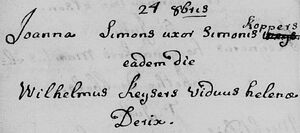 24 8bris
Joanna Simons uxor Simonis Koppers
eadem die
Wilhelmus Keysers viduus helenæ
Derix.